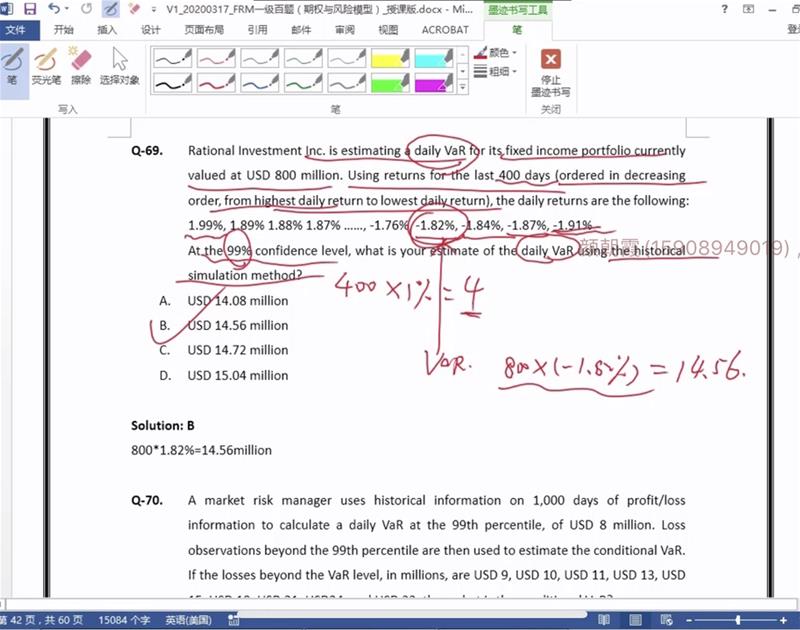 V1_20200317_FRM一级百题（期权与风险模型）_授课版.docx - Mi...
墨迹书写工具
文件 开始 插入 设计 页面布局 引用 邮件 审阅 视图 ACROBAT 笔
笔 荧光笔 擦除 选择对象 颜色 粗细 停止 墨迹书写
写入 笔 关闭
Q-69. Rational Investment Inc. is estimating a daily VaR for its fixed income portfolio currently
valued at USD 800 million. Using returns for the last 400 days (ordered in decreasing
order, from highest daily return to lowest daily return), the daily returns are the following:
1.99%, 1.89% 1.88% 1.87% ......, -1.76% -1.82%, -1.84%, -1.87%, -1.91%
At the 99% confidence level, what is your estimate of the daily VaR using the historical
simulation method?
A. USD 14.08 million
B. USD 14.56 million
C. USD 14.72 million
D. USD 15.04 million
400 × 1% = 4
VaR. 800 × (-1.82%) = 14.56.
Solution: B
800*1.82%=14.56million
Q-70. A market risk manager uses historical information on 1,000 days of profit/loss
information to calculate a daily VaR at the 99th percentile, of USD 8 million. Loss
observations beyond the 99th percentile are then used to estimate the conditional VaR.
If the losses beyond the VaR level, in millions, are USD 9, USD 10, USD 11, USD 13, USD
第 42 页，共 60 页 15084 个字 英语(美国)